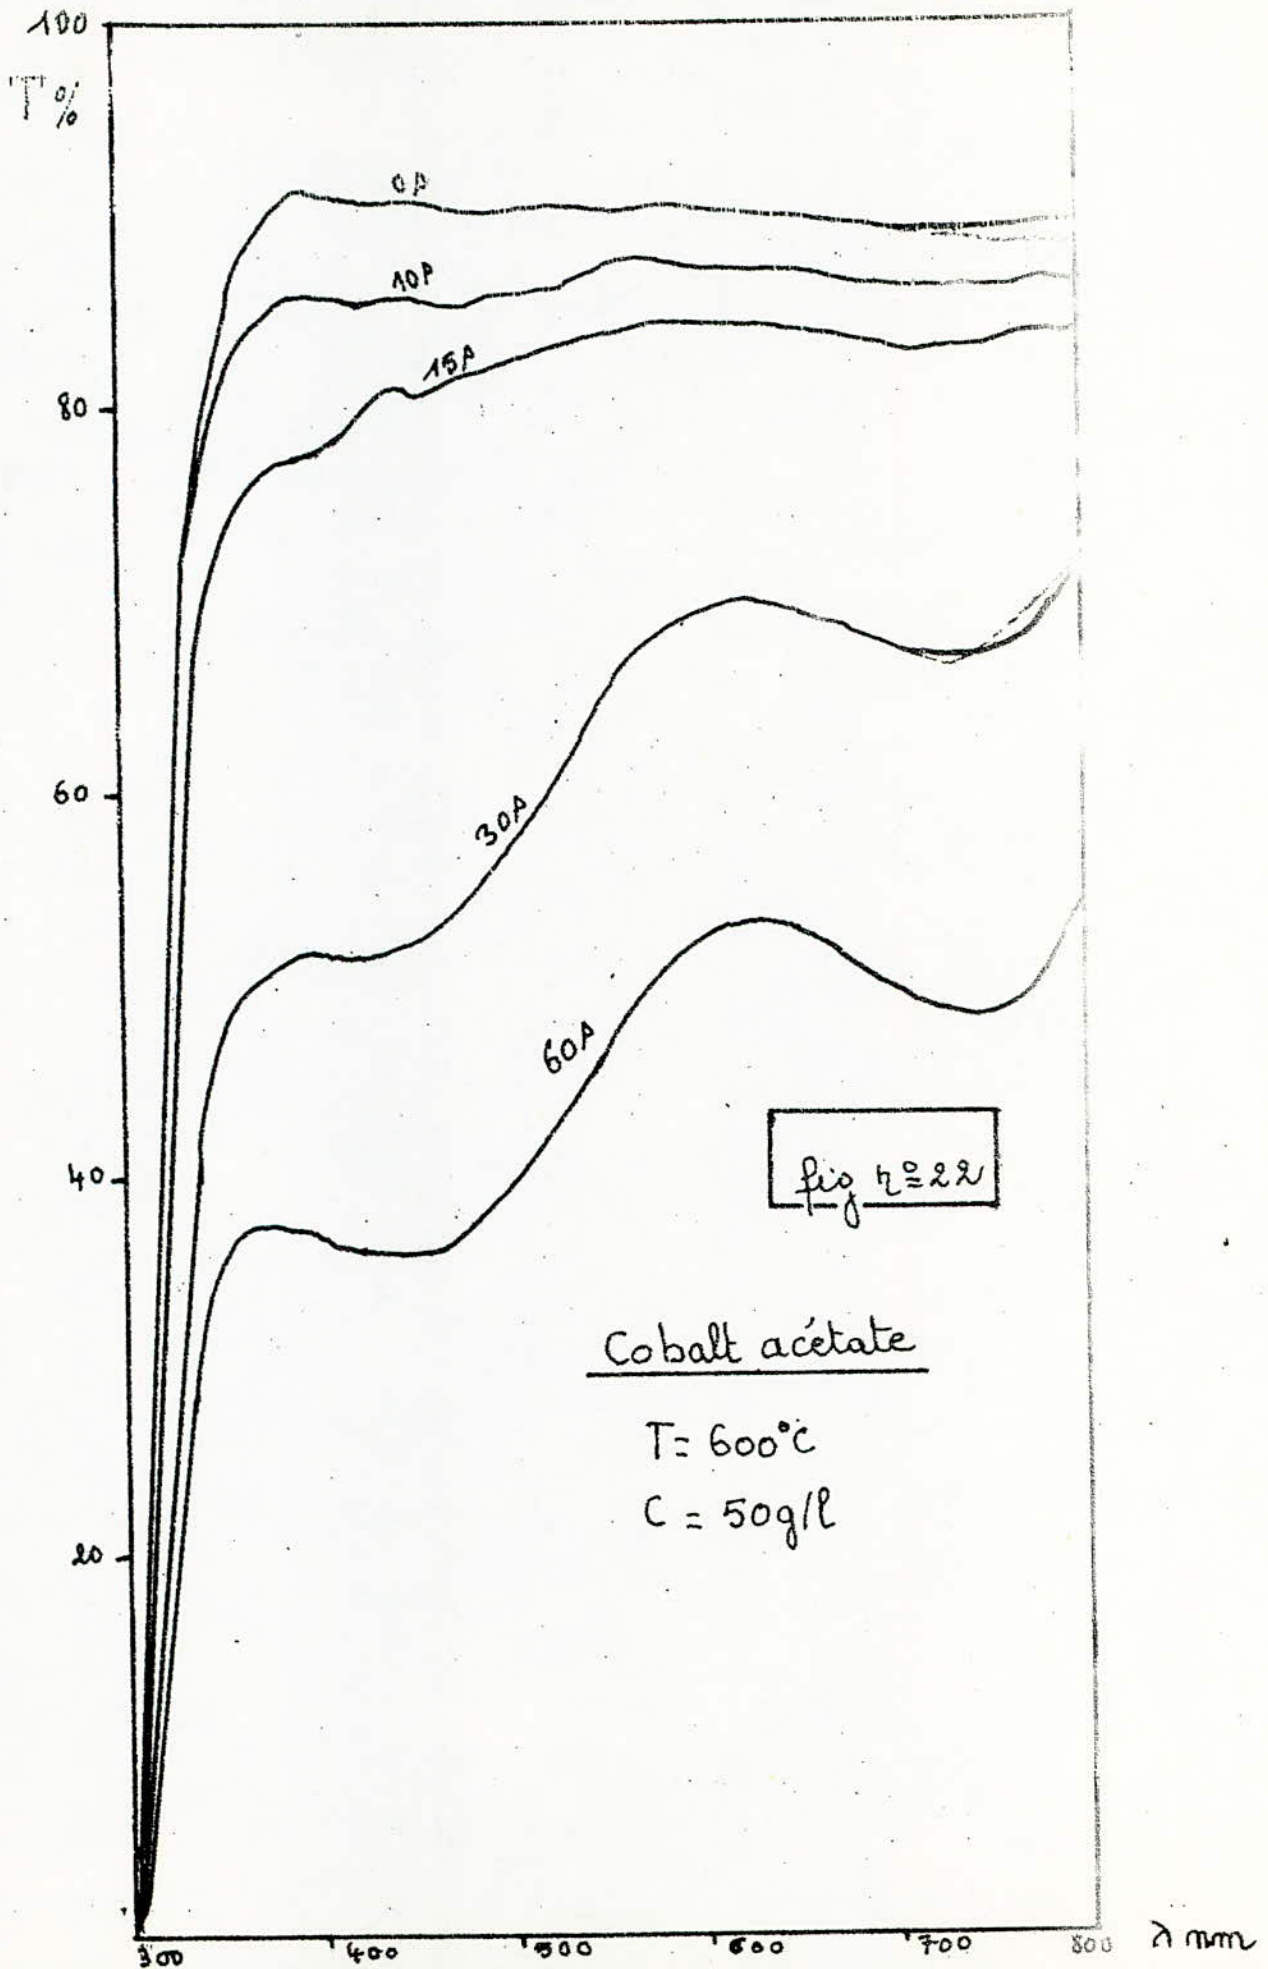 100
T%
0p
10p
15p
80
60
30p
60p
40
fig nº22
Cobalt acétate
T= 600°C
C = 50g/l
20
300 400 500 600 700 800 λ nm